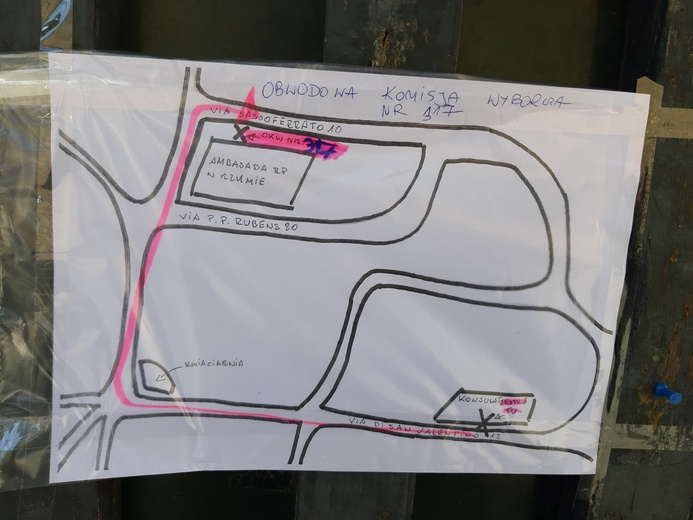 OBWODOWA KOMISJA WYBORCZA
NR 317
VIA SASSOFERRATO 10
OKW NR 317
AMBASADA RP
W RZYMIE
VIA P.P. RUBENS 20
KWIACIARNIA
KONSULAT
VIA DI SAN VALENTINO 12